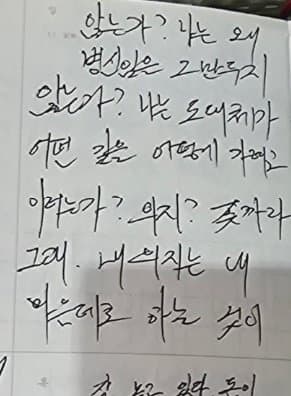 않는가? 나는 왜
병신같은 그만두지
않는가? 나는 도대체가
어떤 길을 어떻게 가려고
이러는가? 의지? 좆까라
그래. 내 의지는 내
마음데로 하는 것이
놓고 있다 돈이